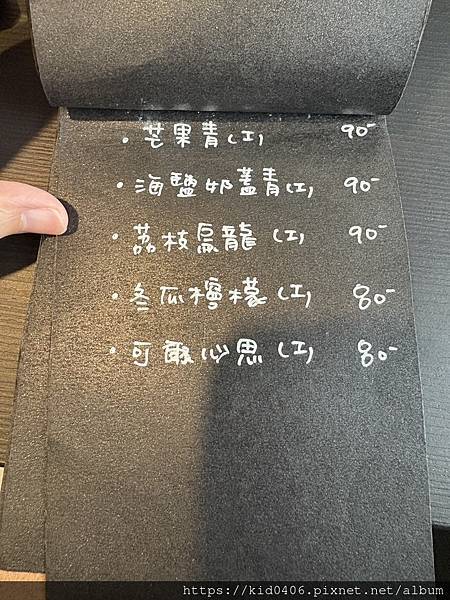 ・芒果青(I) 90-
・海鹽奶蓋青(I) 90-
・荔枝烏龍(I) 90-
・冬瓜檸檬(I) 80-
・可爾心思(I) 80-
https://kid0406.pixnet.net/album